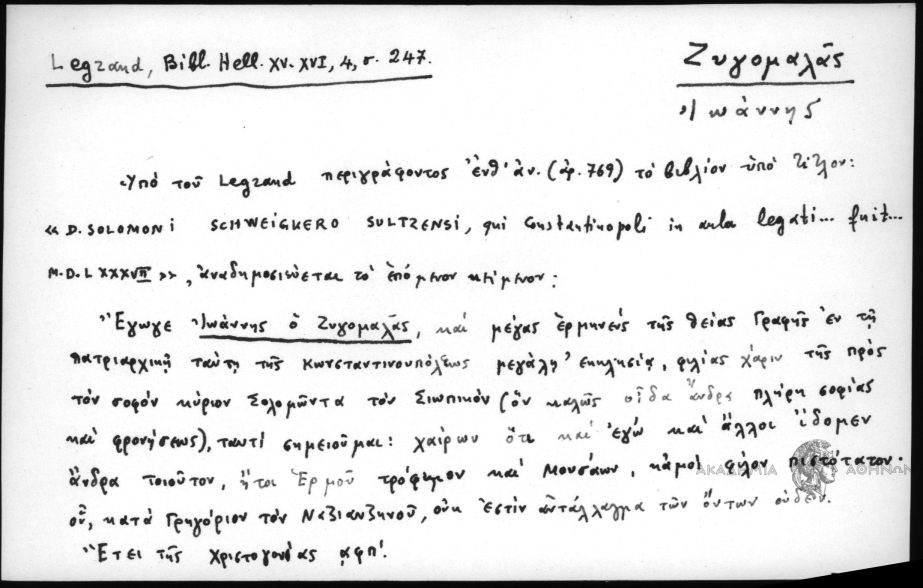 Legrand, Bibl. Hell. XV-XVI, 4, σ. 247.
Ζυγομαλᾶς
Ἰωάννης
Ὑπὸ τοῦ Legrand περιγράφοντος ἐνθ' ἀν. (ἀρ. 769) τὸ βιβλίον ὑπὸ τίτλον:
« D. SOLOMONI SCHWEIGKERO SULTZENSI, qui Constantinopoli in aula legati... fuit...
M.D.LXXXVII », ἀναδημοσιεύεται τὸ ἑπόμενον κείμενον:
"Ἔγωγε Ἰωάννης ὁ Ζυγομαλᾶς, καὶ μέγας ἑρμηνεὺς τῆς θείας Γραφῆς ἐν τῇ
πατριαρχικῇ ταύτῃ τῆς Κωνσταντινουπόλεως μεγάλῃ ἐκκλησίᾳ, φιλίας χάριν τῆς πρὸς
τὸν σοφὸν κύριον Σολομῶντα τὸν Σιωπικὸν (ὃν καλῶς οἶδα ἄνδρα πλήρη σοφίας
καὶ φρονήσεως), ταυτὶ σημειοῦμαι: χαίρων ὅτι καὶ ἐγὼ καὶ ἄλλοι ἴδομεν
ἄνδρα τοιοῦτον, ἤτοι Ἑρμοῦ τρόφιμον καὶ Μουσάων, κἀμοὶ φίλον πιστότατον·
οὗ, κατὰ Γρηγόριον τὸν Ναζιανζηνοῦ, οὐκ ἔστιν ἀντάλλαγμα τῶν ὄντων οὐδέν.
"Ἔτει τῆς Χριστογονίας ͵αφπ'.
ΑΚΑΔΗΜΙΑ ΑΘΗΝΩΝ